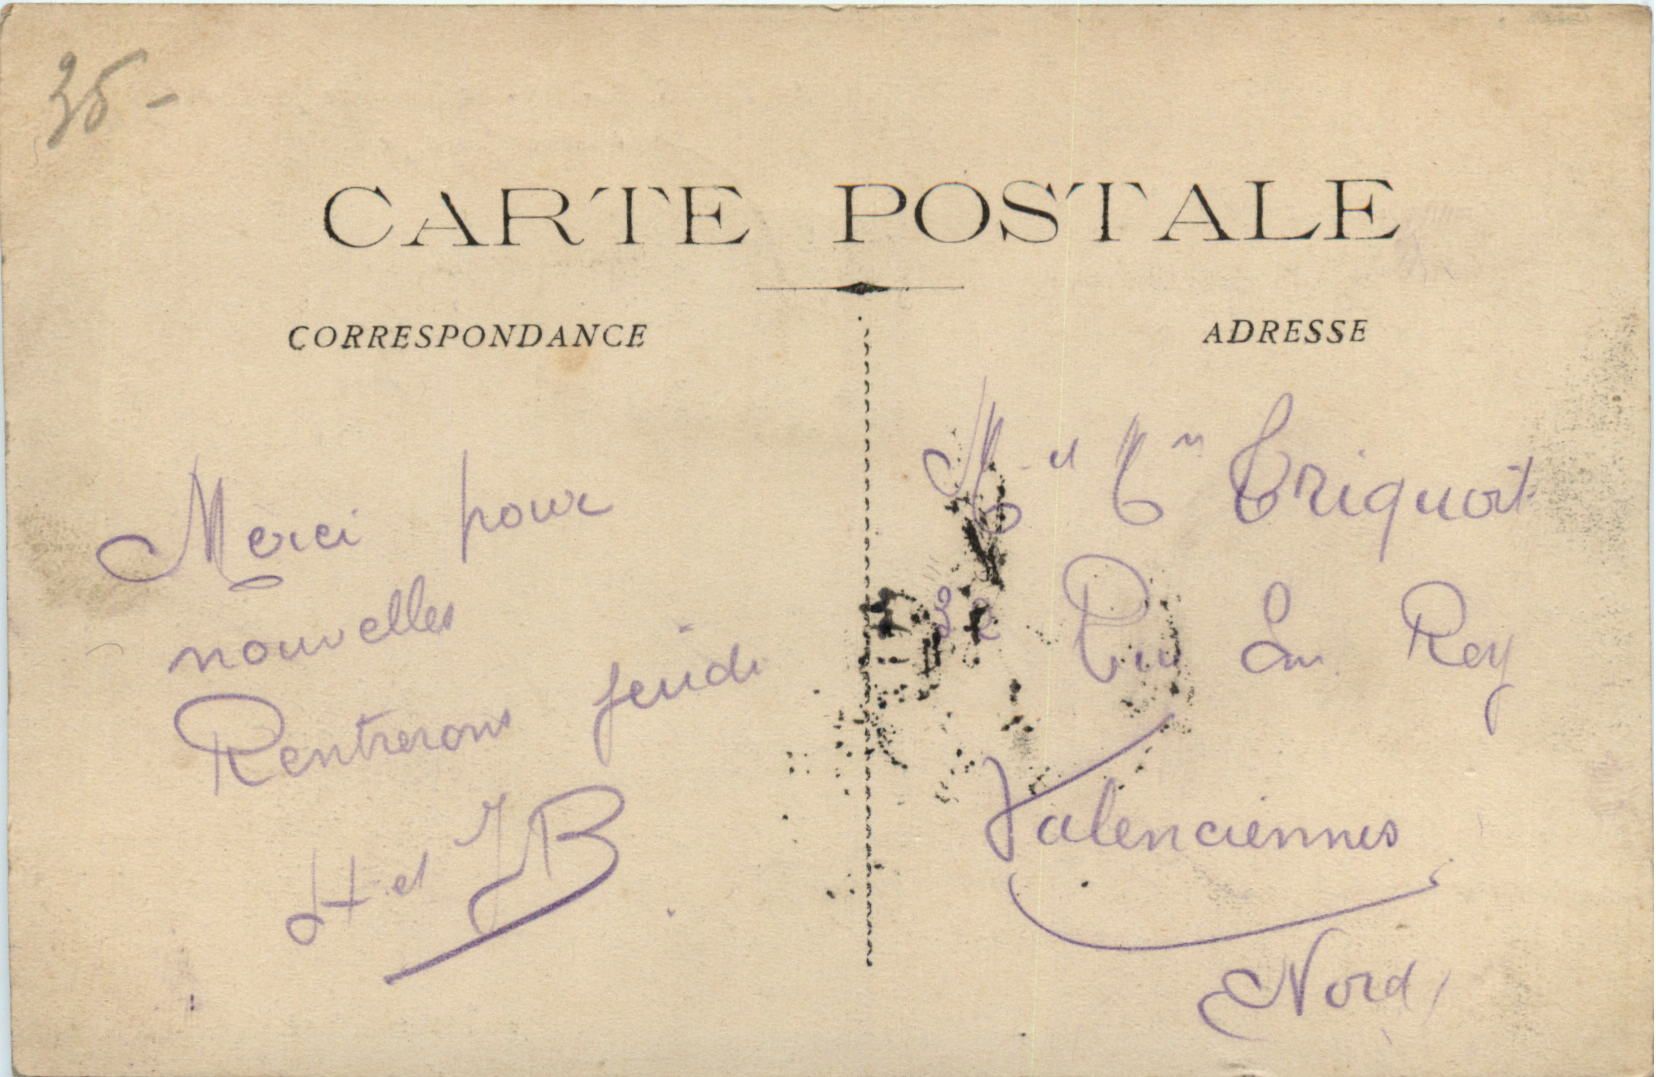 35-
CARTE POSTALE
CORRESPONDANCE
ADRESSE
Merci pour
nouvelles
Rentrerons jeudi
H et JB
M. et Triquoit
32 Rey
Valenciennes
Nord